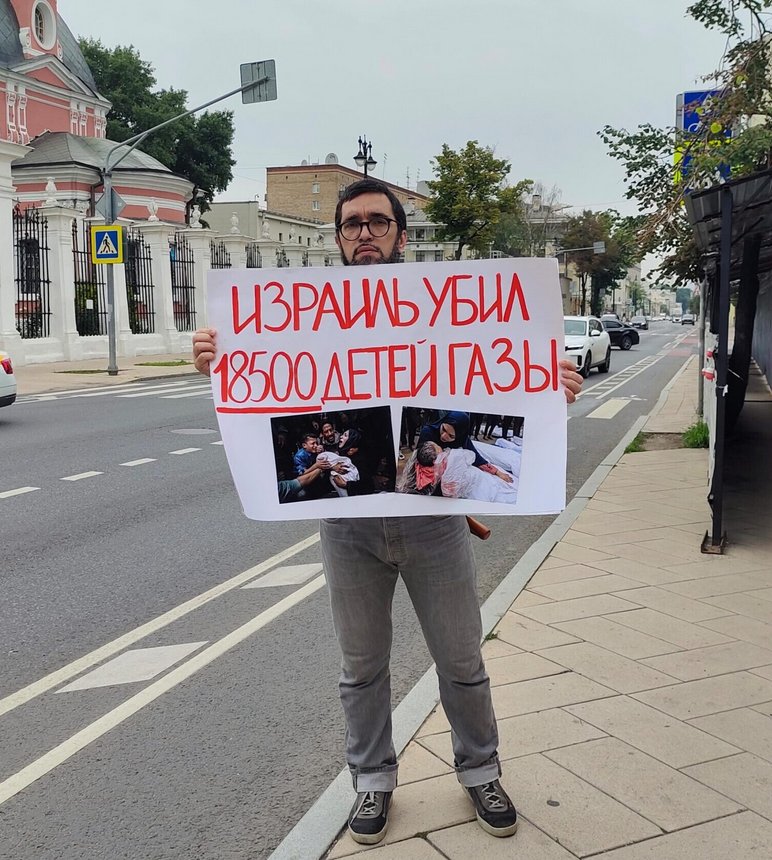 ИЗРАИЛЬ УБИЛ
18500 ДЕТЕЙ ГАЗЫ